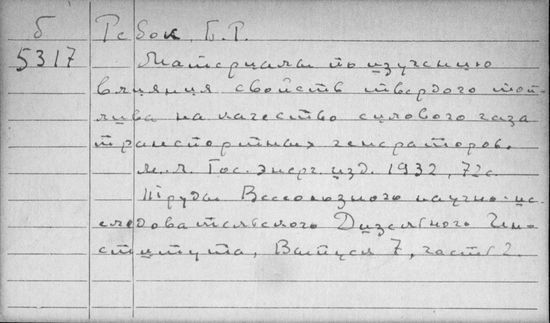 б Ребок, Б.Р.
5317 Материалы по изучению
влияния свойств твердого топ-
лива на качество силового газа
транспортных генераторов.
М.Л. Гос. энерг. изд. 1932, 72 с.
Труды Всесоюзного научно-ис-
следовательского Дизельного Ин-
ститута, Выпуск 7, часть 2.